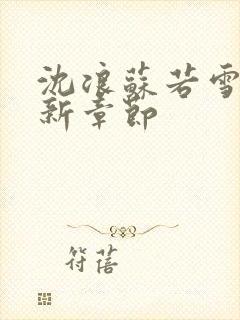 沈浪蘇若雪
新章節
符蓓